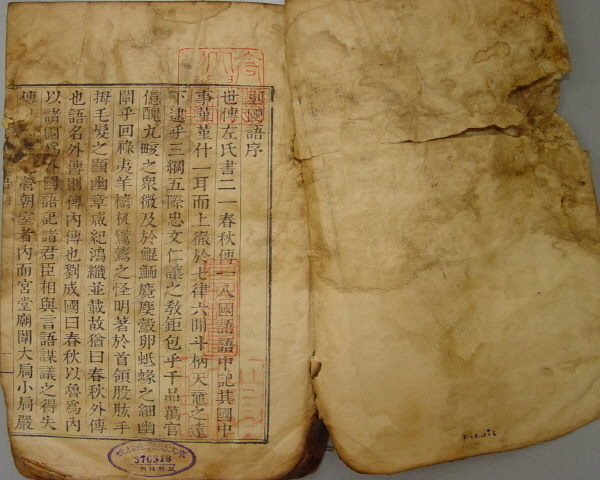 國語序
世傳左氏書二一春秋傳一八國語語中記其國中
事菫菫什一耳而上徵於七律六閒斗柄天黿之遠
下逮乎三綱五際忠文仁讓之敎鉅包乎千品萬官
億醜九畡之衆微及於鯤鮞麑鷇卵蚳蝝之細幽
闡乎回祿夷羊檮杌鸑鷟之怪明著於首領股肱手
拇毛髮之顯幽章咸紀鴻纖並載故猶曰春秋外傳
也語名外傳則傳內傳也劉成國曰春秋以魯爲內
以諸國爲外國語記諸君臣相與言語謀議之得失
傳營朝室者內而宮堂廟闈大局小局嚴
376318